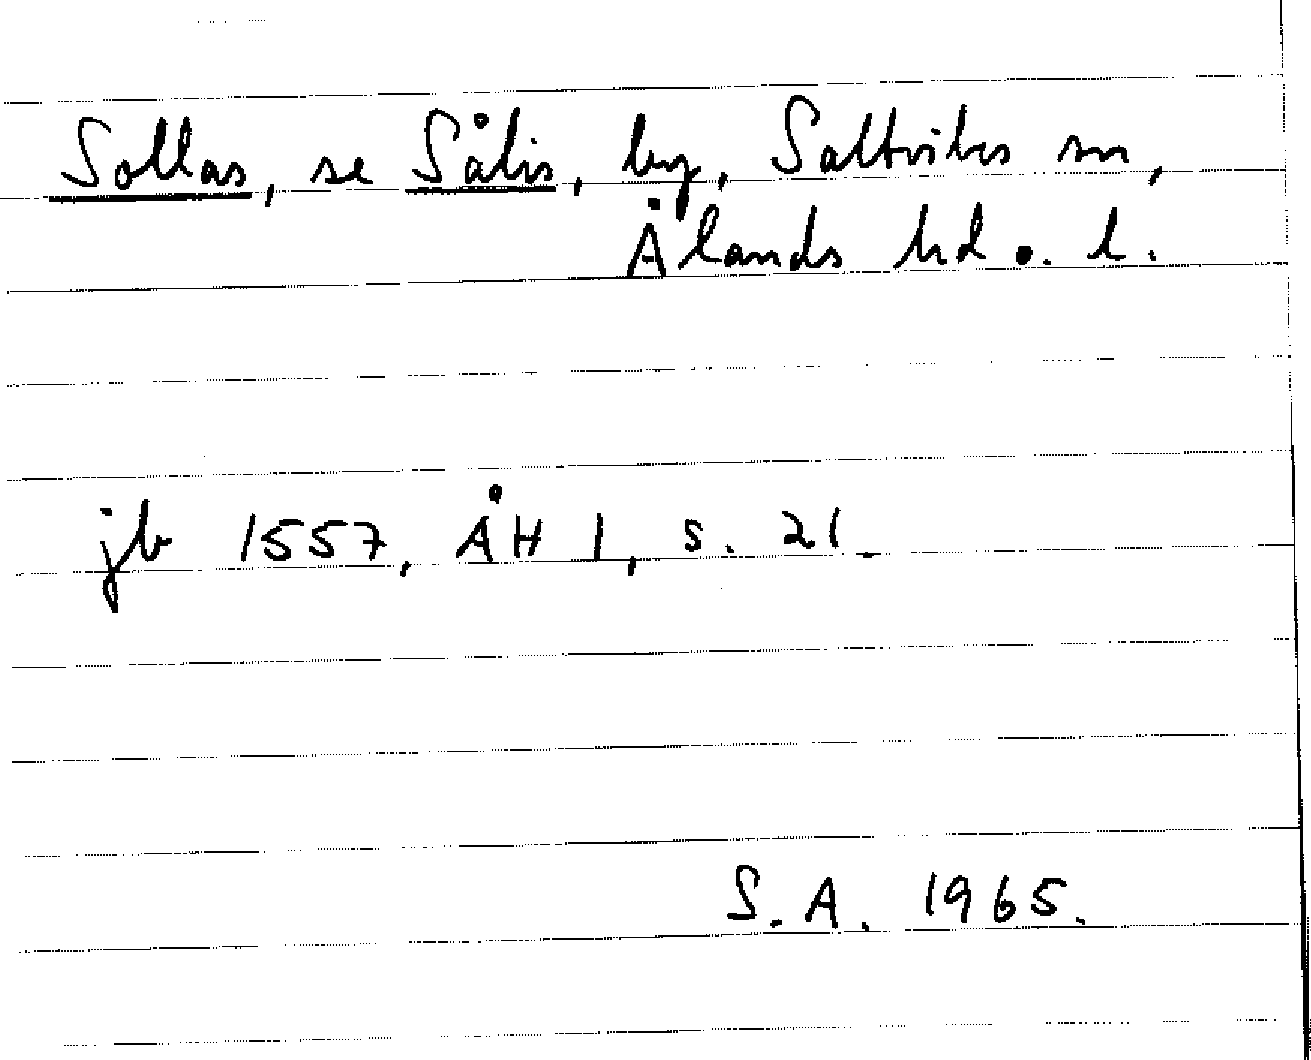 Sollas, se Sålis, by, Saltviks sn,
Ålands hd o. l.
jb 1557, ÅH 1, s. 21.
S. A. 1965.